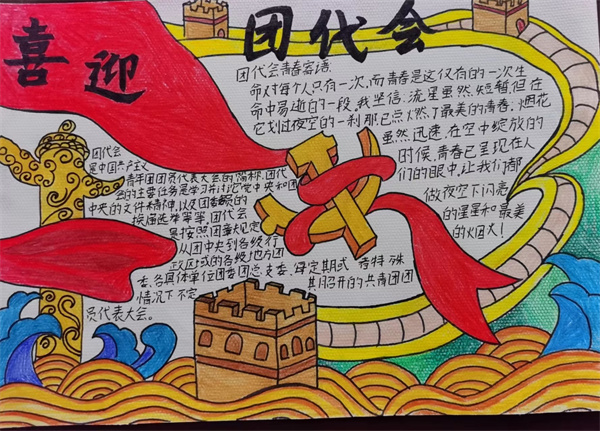 喜迎
团代会
团代会青春寄语:
命对每个人只有一次,而青春是这仅有的一次生
命中易逝的一段,我坚信,流星虽然短暂,但在
它划过夜空的一刹那已点燃了最美的青春,烟花
虽然迅速,在空中绽放的
时候,青春已呈现在人
们的眼中,让我们都
做夜空下闪亮
的星星和最美
的烟火!
团代会
是中国共产主义
青年团团员代表大会的简称,团代
会的主要任务是学习和讨论党中央和团
中央的文件精神,以及团委的
换届选举等等,团代会
是按照团章规定
从团中央到各级行
政区或的各级地方团
委,各具体单位团委团总支委,
定期或 特殊
情况下不定
期召开的共青团团
员代表大会。